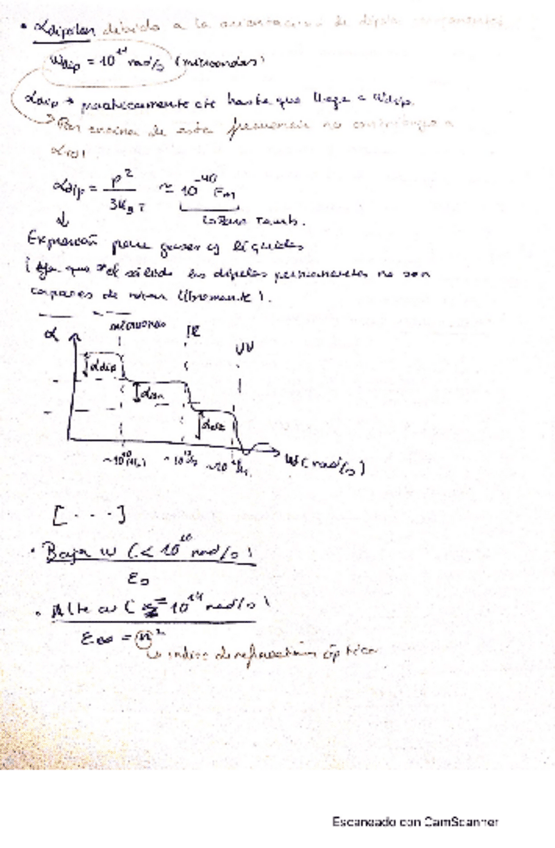 • αdipolar debido a la orientación de dipolos
Wdip = 10¹¹ rad/s (microondas)
αdip → prácticamente cte hasta que llega a Wdip.
Por encima de esta frecuencia no contribuye a
αtot.
αdip = p² / 3k_B T ≈ 10⁻⁴⁰ Fm²
↓
Expresión para gases y líquidos
(ya que el sólido los dipolos permanentes no son
capaces de rotar libremente).
α microondas IR UV
αdip
αion
αele
~10¹⁰ ~10¹³ W (rad/s)
[ . . . ]
• Baja w (< 10¹⁰ rad/s)
εs
• Alta w (≥ 10¹⁴ rad/s)
ε∞ = n²
↳ índice de refracción óptico
Escaneado con CamScanner